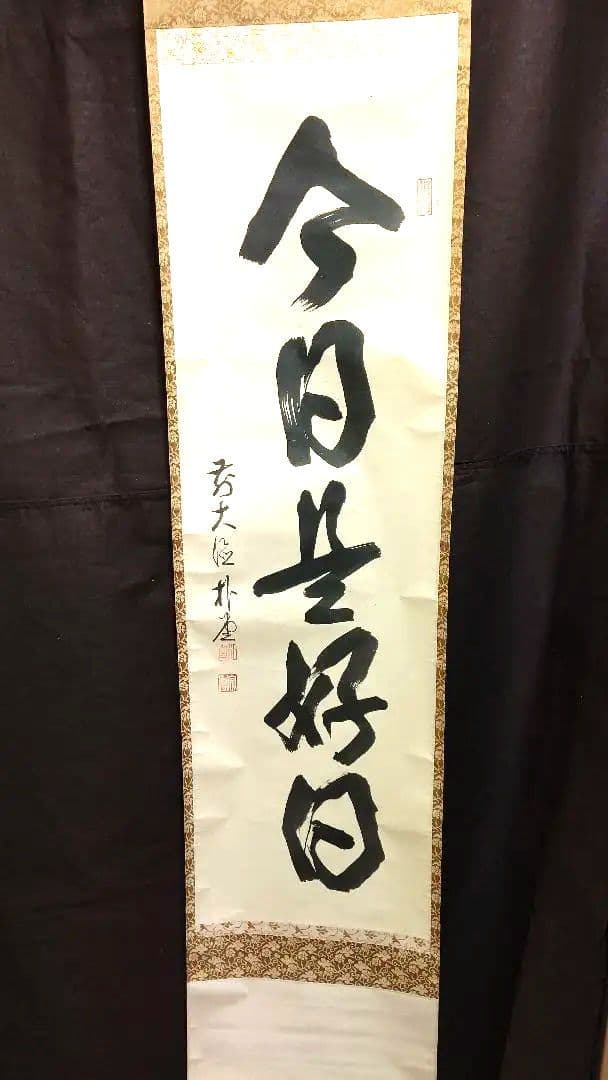 今日是好日
前大徳朴堂